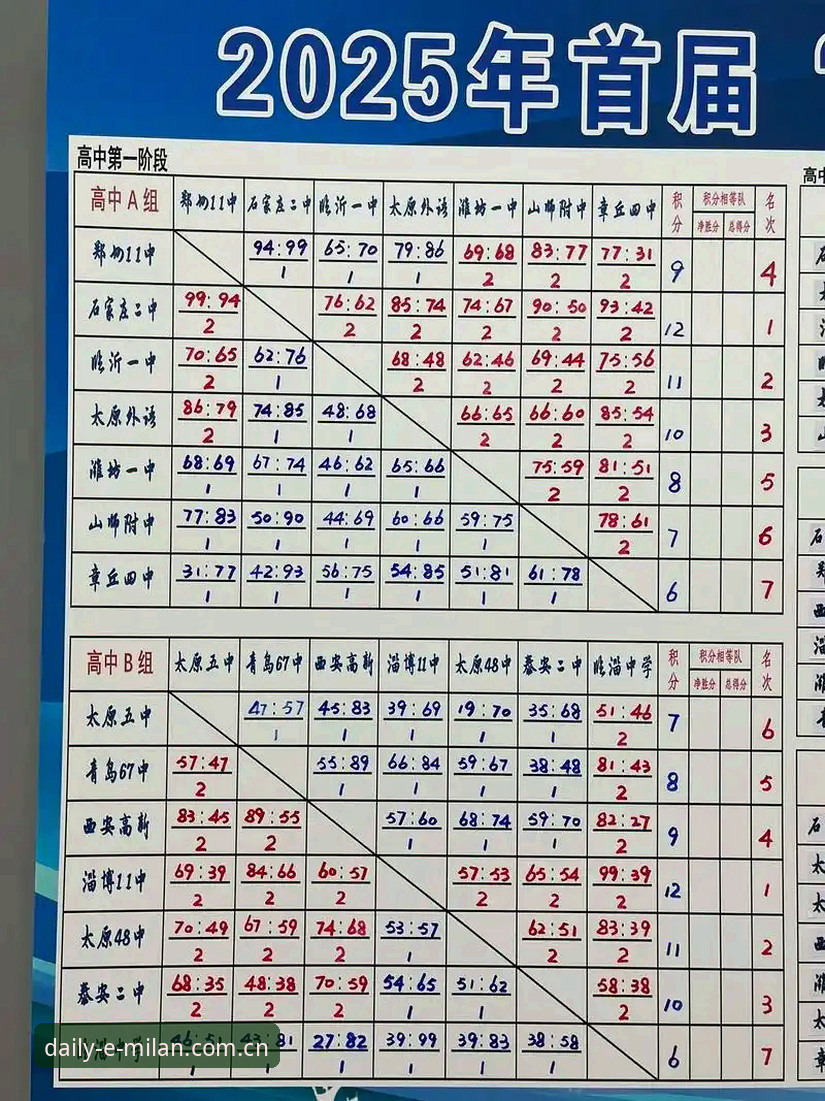 2025年首届
高中第一阶段
高中A组 郑州11中 石家庄二中 临沂一中 太原外语 潍坊一中 山师附中 章丘四中 积分 积分相等队 净胜分 总得分 名次
郑州11中 94:99 65:70 79:86 69:68 83:77 77:31 9 4
1 1 1 2 2 2
石家庄二中 99:94 76:62 85:74 74:67 90:50 93:42 12 1
2 2 2 2 2 2
临沂一中 70:65 62:76 68:48 62:46 69:44 75:56 11 2
2 1 2 2 2 2
太原外语 86:79 74:85 48:68 66:65 66:60 85:54 10 3
2 1 1 2 2 2
潍坊一中 68:69 67:74 46:62 65:66 75:59 81:51 8 5
1 1 1 1 2 2
山师附中 77:83 50:90 44:69 60:66 59:75 78:61 7 6
1 1 1 1 1 2
章丘四中 31:77 42:93 56:75 54:85 51:81 61:78 6 7
1 1 1 1 1 1
高中B组 太原五中 青岛67中 西安高新 淄博11中 太原48中 泰安二中 临淄中学 积分 积分相等队 净胜分 总得分 名次
太原五中 47:57 45:83 39:69 19:70 35:68 51:46 7 6
1 1 1 1 1 2
青岛67中 57:47 55:89 66:84 59:67 38:48 81:43 8 5
2 1 1 1 1 2
西安高新 83:45 89:55 57:60 68:74 59:70 82:27 9 4
2 2 1 1 1 2
淄博11中 69:39 84:66 60:57 57:53 65:54 99:39 12 1
2 2 2 2 2 2
太原48中 70:49 67:59 74:68 53:57 62:51 83:39 11 2
2 2 2 1 2 2
泰安二中 68:35 48:38 70:59 54:65 51:62 58:38 10 3
2 2 2 1 1 2
27:82 39:99 39:83 38:58 6 7
1 1 1 1 1 1
daily-e-milan.com.cn